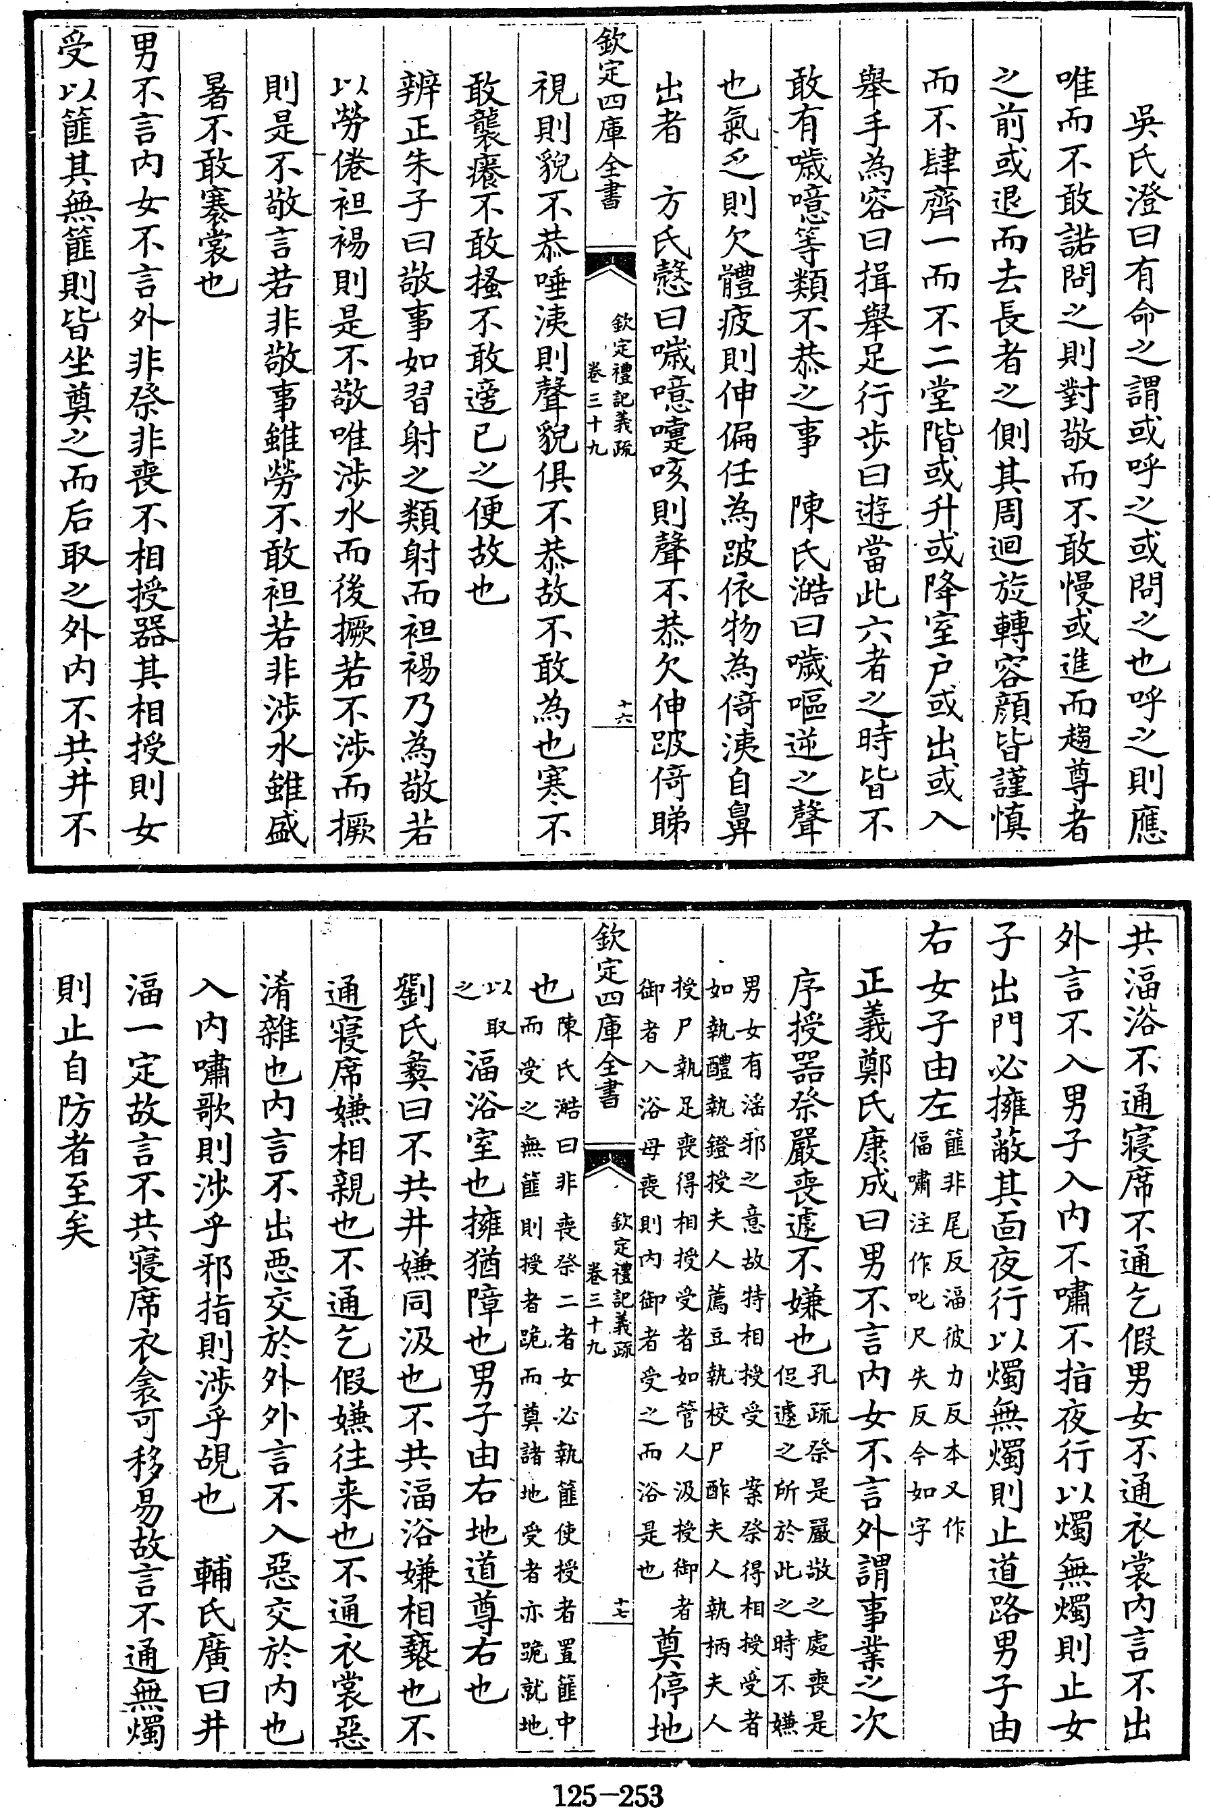 吳氏澄曰有命之謂或呼之或問之也呼之則應
唯而不敢諾問之則對敬而不敢慢或進而趨尊者
之前或退而去長者之側其周迴旋轉容顔皆謹慎
而不肆齊一而不二堂階或升或降室户或出或入
舉手為容曰揖舉足行步曰遊當此六者之時皆不
敢有噦噫等類不恭之事　陳氏澔曰噦嘔逆之聲
也氣乏則欠體疲則伸偏任為跛依物為倚洟自鼻
出者　方氏慤曰噦噫嚏咳則聲不恭欠伸跛倚睇
欽定四庫全書
欽定禮記義疏
卷三十九
十六
視則貌不恭唾洟則聲貌俱不恭故不敢為也寒不
敢襲癢不敢搔不敢適已之便故也
辨正朱子曰敬事如習射之類射而袒裼乃為敬若
以勞倦袒裼則是不敬唯涉水而後撅若不涉而撅
則是不敬言若非敬事雖勞不敢袒若非涉水雖盛
暑不敢褰裳也
男不言内女不言外非祭非喪不相授器其相授則女
受以篚其無篚則皆坐奠之而后取之外内不共井不
共湢浴不通寢席不通乞假男女不通衣裳内言不出
外言不入男子入内不嘯不指夜行以燭無燭則止女
子出門必擁蔽其面夜行以燭無燭則止道路男子由
右女子由左
篚非尾反湢彼力反本又作
偪嘯注作叱尺失反今如字
正義鄭氏康成曰男不言内女不言外謂事業之次
序授器祭嚴喪遽不嫌也
孔疏祭是嚴敬之處喪是
促遽之所於此之時不嫌
男女有淫邪之意故特相授受　案祭得相授受者
如執醴執鐙授夫人薦豆執校尸酢夫人執柄夫人
授尸執足喪得相授受者如管人汲授御者
御者入浴母喪則内御者受之而浴是也
奠停地
欽定四庫全書
欽定禮記義疏
卷三十九
十七
也
陳氏澔曰非喪祭二者女必執篚使授者置篚中
而受之無篚則授者跪而奠諸地受者亦跪就地
以取
之
湢浴室也擁猶障也男子由右地道尊右也
劉氏彝曰不共井嫌同汲也不共湢浴嫌相褻也不
通寢席嫌相親也不通乞假嫌往来也不通衣裳惡
淆雜也内言不出惡交於外外言不入惡交於内也
入内嘯歌則涉乎邪指則涉乎覘也　輔氏廣曰井
湢一定故言不共寢席衣衾可移易故言不通無燭
則止自防者至矣
125-253